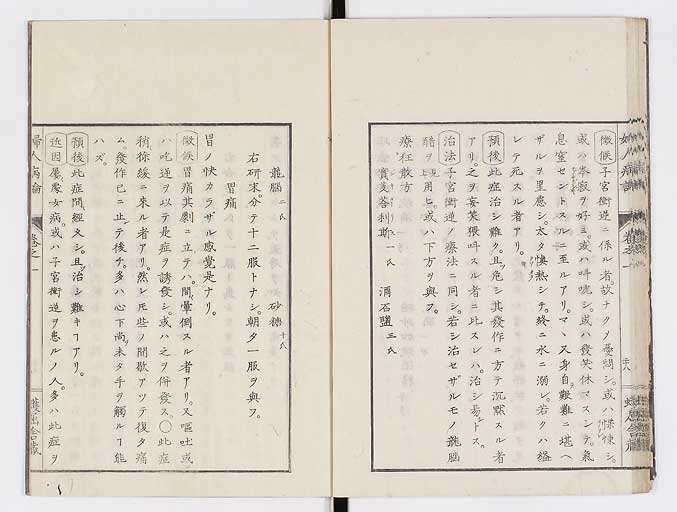 婦人病論
巻之一
徴候 子宮衝逆ニ係ル者故ナクノ憂悶シ。或ハ慄悚シ。
或ハ寂ヲ好ミ。或ハ呌吼シ。或ハ發笑休マスシテ。氣
息窒セントスルニ至ルアリ。又身自艱難ニ堪ヘ
ザルヲ思慮シ。太タ懊熱シテ。終ニ水ニ溺レ。若クハ縊
レテ死スル者アリ。
預後 此症治シ難ク。且危シ其發作ニ方テ沉黙スル者
アリ。之ヲ妄笑呌スル者ニ比スレハ。治シ易シトス。
治法 子宮衝逆ノ療法ニ同シ。若シ治セザルモノ龍腦
醋ヲ用ヒ。或ハ下方ヲ與フ。
療狂散方
實芰荅利斯 一氏 消石鹽 三氏
龍腦 二氏 砂糖 十氏
右研末分テ十二服トナシ。朝夕一服ヲ與フ。
胃痛
胃ノ快カラザル感覺是ナリ。
徴候 胃痛其劇ニ立テハ。間暈倒スル者アリ。又嘔吐或
ハ吃逆ヲ以テ是症ヲ誘發シ。或ハ之ヲ併發ス。〇此症
稍徐緩ニ來ル者アリ。然レ𪜈些ノ間歇アツテ復タ痛
ム。發作已ニ止テ後チ。多ハ心下尚未タ手ヲ觸ルヿ能
ハズ。
預後 此症間經久シ。且治シ難キヿアリ。
近因 屢處女病。或ハ子宮衝逆ヲ患ルノ人。多ハ此症ヲ
婦人病論
巻之一